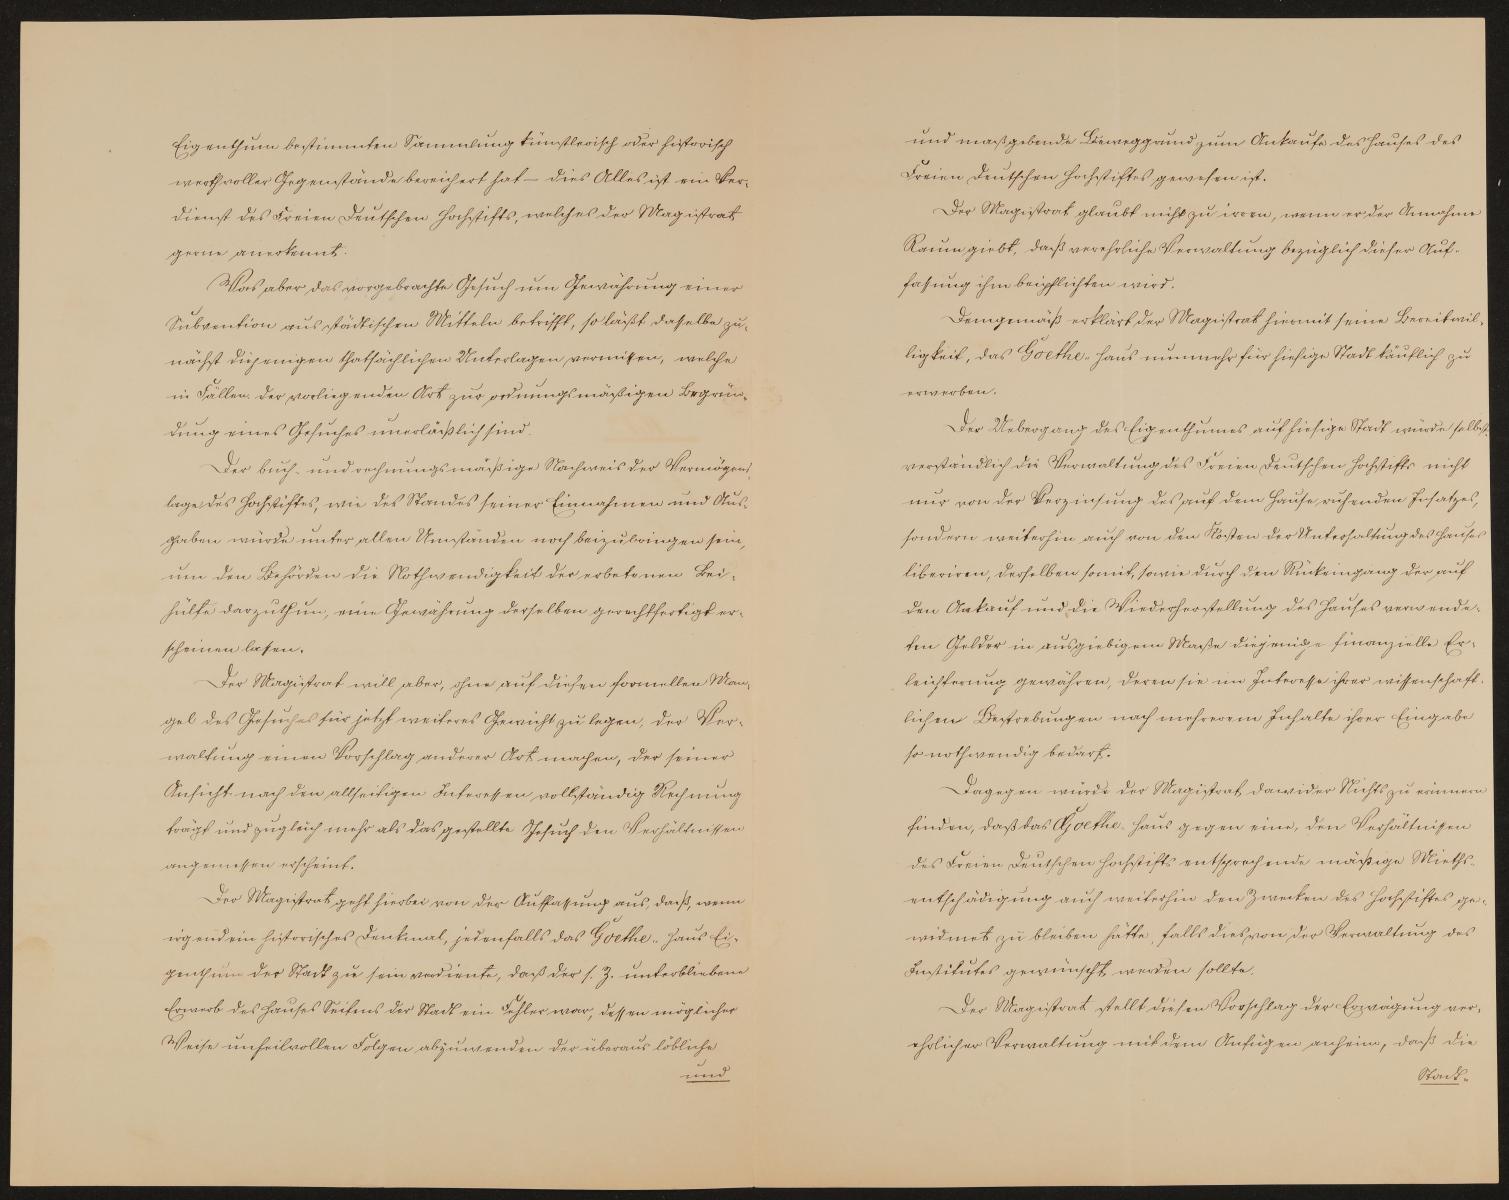 Eigenthum bestimmten Sammlung künstlerisch oder historisch
werthvoller Gegenstände bereichert hat – dies Alles ist ein Ver-
dienst des Freien Deutschen Hochstifts, welches der Magistrat
gerne anerkennt.
Was aber das vorgebrachte Gesuch um Gewährung einer
Subvention aus städtischen Mitteln betrifft, so läßt dasselbe zu-
nächst diejenigen thatsächlichen Unterlagen vermissen, welche
in Fällen der vorliegenden Art zur ordnungsmäßigen Begrün-
dung eines Gesuches unerläßlich sind.
Der buch- und rechnungsmäßige Nachweis der Vermögens-
lage des Hochstiftes, wie des Standes seiner Einnahmen und Aus-
gaben würde unter allen Umständen noch beizubringen sein,
um den Behörden die Nothwendigkeit der erbetenen Bei-
hülfe darzuthun, eine Gewährung derselben gerechtfertigt er-
scheinen lassen.
Der Magistrat will aber, ohne auf diesen formellen Man-
gel des Gesuches für jetzt weiteres Gewicht zu legen, der Ver-
waltung einen Vorschlag anderer Art machen, der seiner
Ansicht nach den allseitigen Interessen vollständig Rechnung
trägt und zugleich mehr als das gestellte Gesuch den Verhältnissen
angemessen erscheint.
Der Magistrat geht hierbei von der Auffassung aus, daß, wenn
irgend ein historisches Denkmal, jedenfalls das Goethe-Haus Ei-
genthum der Stadt zu sein verdiente, daß der s. Z. unterbliebene
Erwerb des Hauses Seitens der Stadt ein Fehler war, dessen möglicher
Weise unheilvollen Folgen abzuwenden der überaus löbliche
und
und maßgebende Beweggrund zum Ankaufe des Hauses des
Freien Deutschen Hochstiftes gewesen ist.
Der Magistrat glaubt nicht zu irren, wenn er der Annahme
Raum giebt, daß verehrliche Verwaltung bezüglich dieser Auf-
fassung ihm beipflichten wird.
Demgemäß erklärt der Magistrat hiermit seine Bereitwil-
ligkeit, das Goethe-Haus nunmehr für hiesige Stadt käuflich zu
erwerben.
Der Uebergang des Eigenthumes auf hiesige Stadt würde selbst-
verständlich die Verwaltung des Freien Deutschen Hochstifts nicht
nur von der Verzinsung des auf dem Hause ruhenden Insatzes,
sondern weiterhin auch von den Kosten der Unterhaltung des Hauses
liberiren, derselben somit, sowie durch den Rückeingang der auf
den Ankauf und die Wiederherstellung des Hauses verwende-
ten Gelder in ausgiebigem Maße diejenige finanzielle Er-
leichterung gewähren, deren sie im Interesse ihrer wissenschaft-
lichen Bestrebungen nach mehrerem Inhalte ihrer Eingabe
so nothwendig bedarf.
Dagegen würde der Magistrat dawider Nichts zu erinnern
finden, daß das Goethe-Haus gegen eine, den Verhältnissen
des Freien Deutschen Hochstifts entsprechende mäßige Mieths-
entschädigung auch weiterhin den Zwecken des Hochstiftes ge-
widmet zu bleiben hätte, falls dies von der Verwaltung des
Institutes gewünscht werden sollte.
Der Magistrat stellt diesen Vorschlag der Erwägung ver-
ehrlicher Verwaltung mit dem Anfügen anheim, daß die
Stadt-